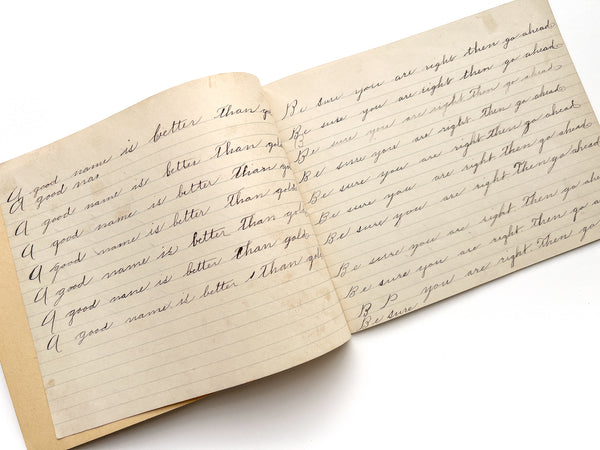 A good name is better than go
A good nas
A good name is better than gold
A good name is better than
A good name is better than gold
A good name is better than gold
A good name is better than gold
A good name is better than gold
Be sure you are right then go ahead
Be sure you are right then go ahead
B
Be sure you are right then go ahead
Be sure you are right then go ahead
Be sure you are right then go ahead
Be sure you are right then go ahead
Be sure you are right then go ahead
Be sure you are right then go ahead
Be sure you are right then go a
B P
Be sure you are right then go